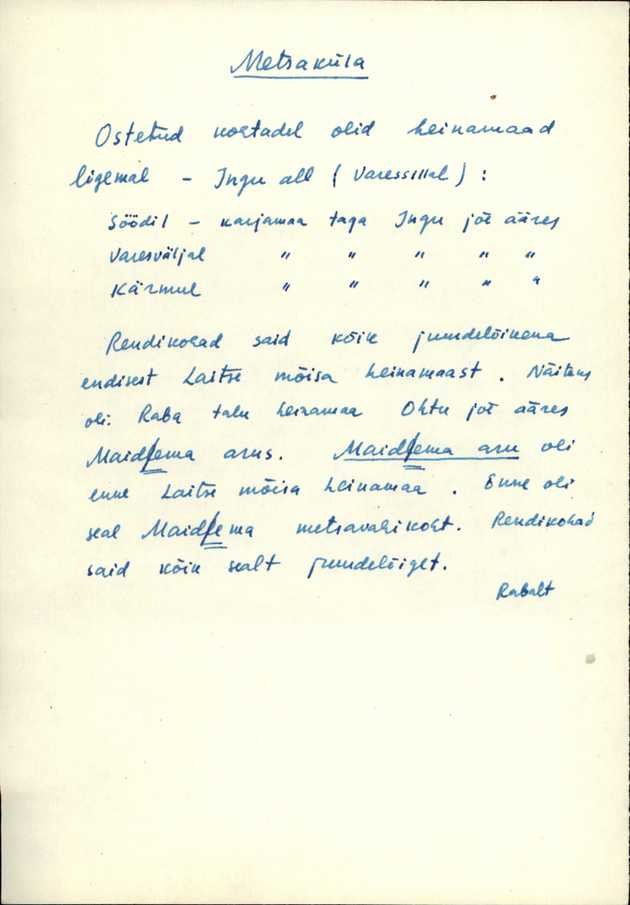 Metsaküla
Ostetud kohtadel olid heinamaad
ligemal - Ingu all (Varessillal):
Söödil - karjamaa taga Ingu jõe ääres
Varesväljal " " " " "
Kärmul " " " " "
Rendikohad said kõik juurdelõikena
endisest Laitse mõisa heinamaast. Näiteks
oli: Raba talu heinamaa Ohtu jõe ääres
arus. aru oli
enne Laitse mõisa heinamaa. Enne oli
seal metsavahikoht. Rendikohad
said kõik sealt juurdelõiget.
Rabalt